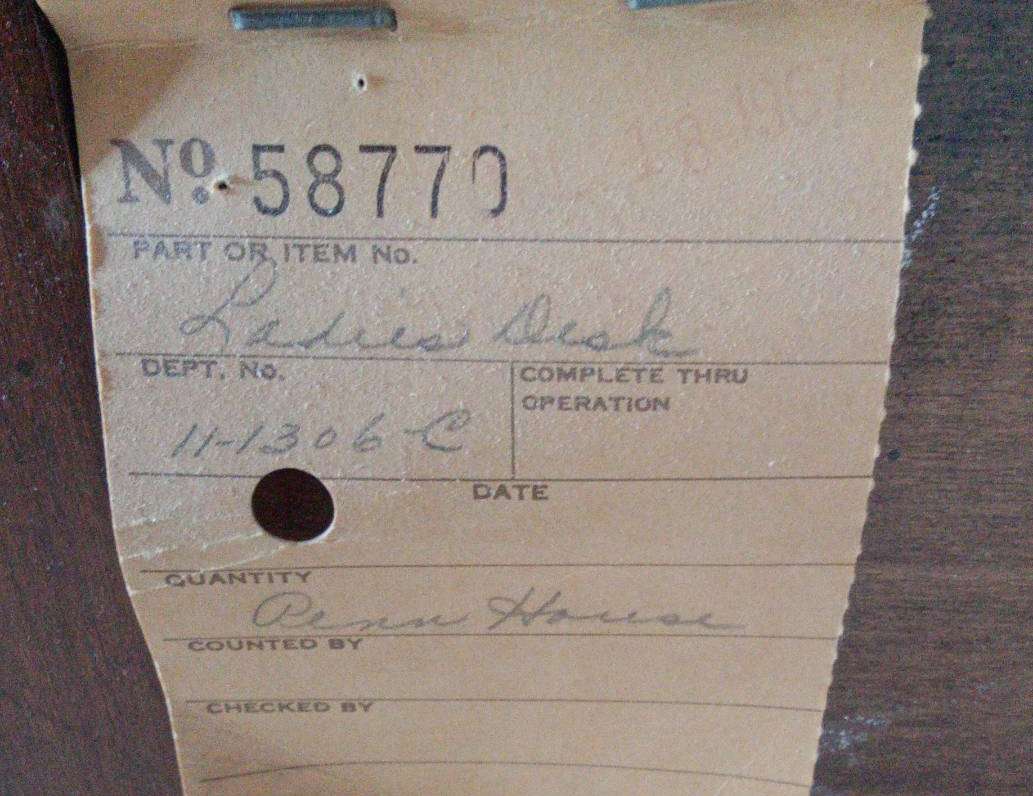 No. 58770
PART OR ITEM No.
Ladies Desk
DEPT. No.
11-1306-C
COMPLETE THRU
OPERATION
DATE
QUANTITY
Penn House
COUNTED BY
CHECKED BY